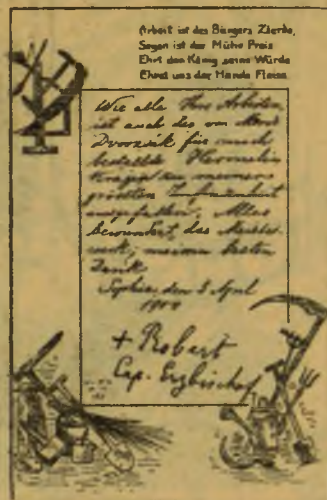 Arbeit ist des Bürgers Zierde,
Segen ist der Mühe Preis
Ehrt den König seine Würde
Ehret uns der Hände Fleiss.
Wie alle Ihre Arbeiten,
ist auch des von
Dvorzák für mich
bestellte
Kragen zu meiner
grössten Zufriedenheit
ausgefallen. Alles
bewundert das
meinen besten
Dank
Sophia den 3 April
+ Robert
Cap. Erzbischof